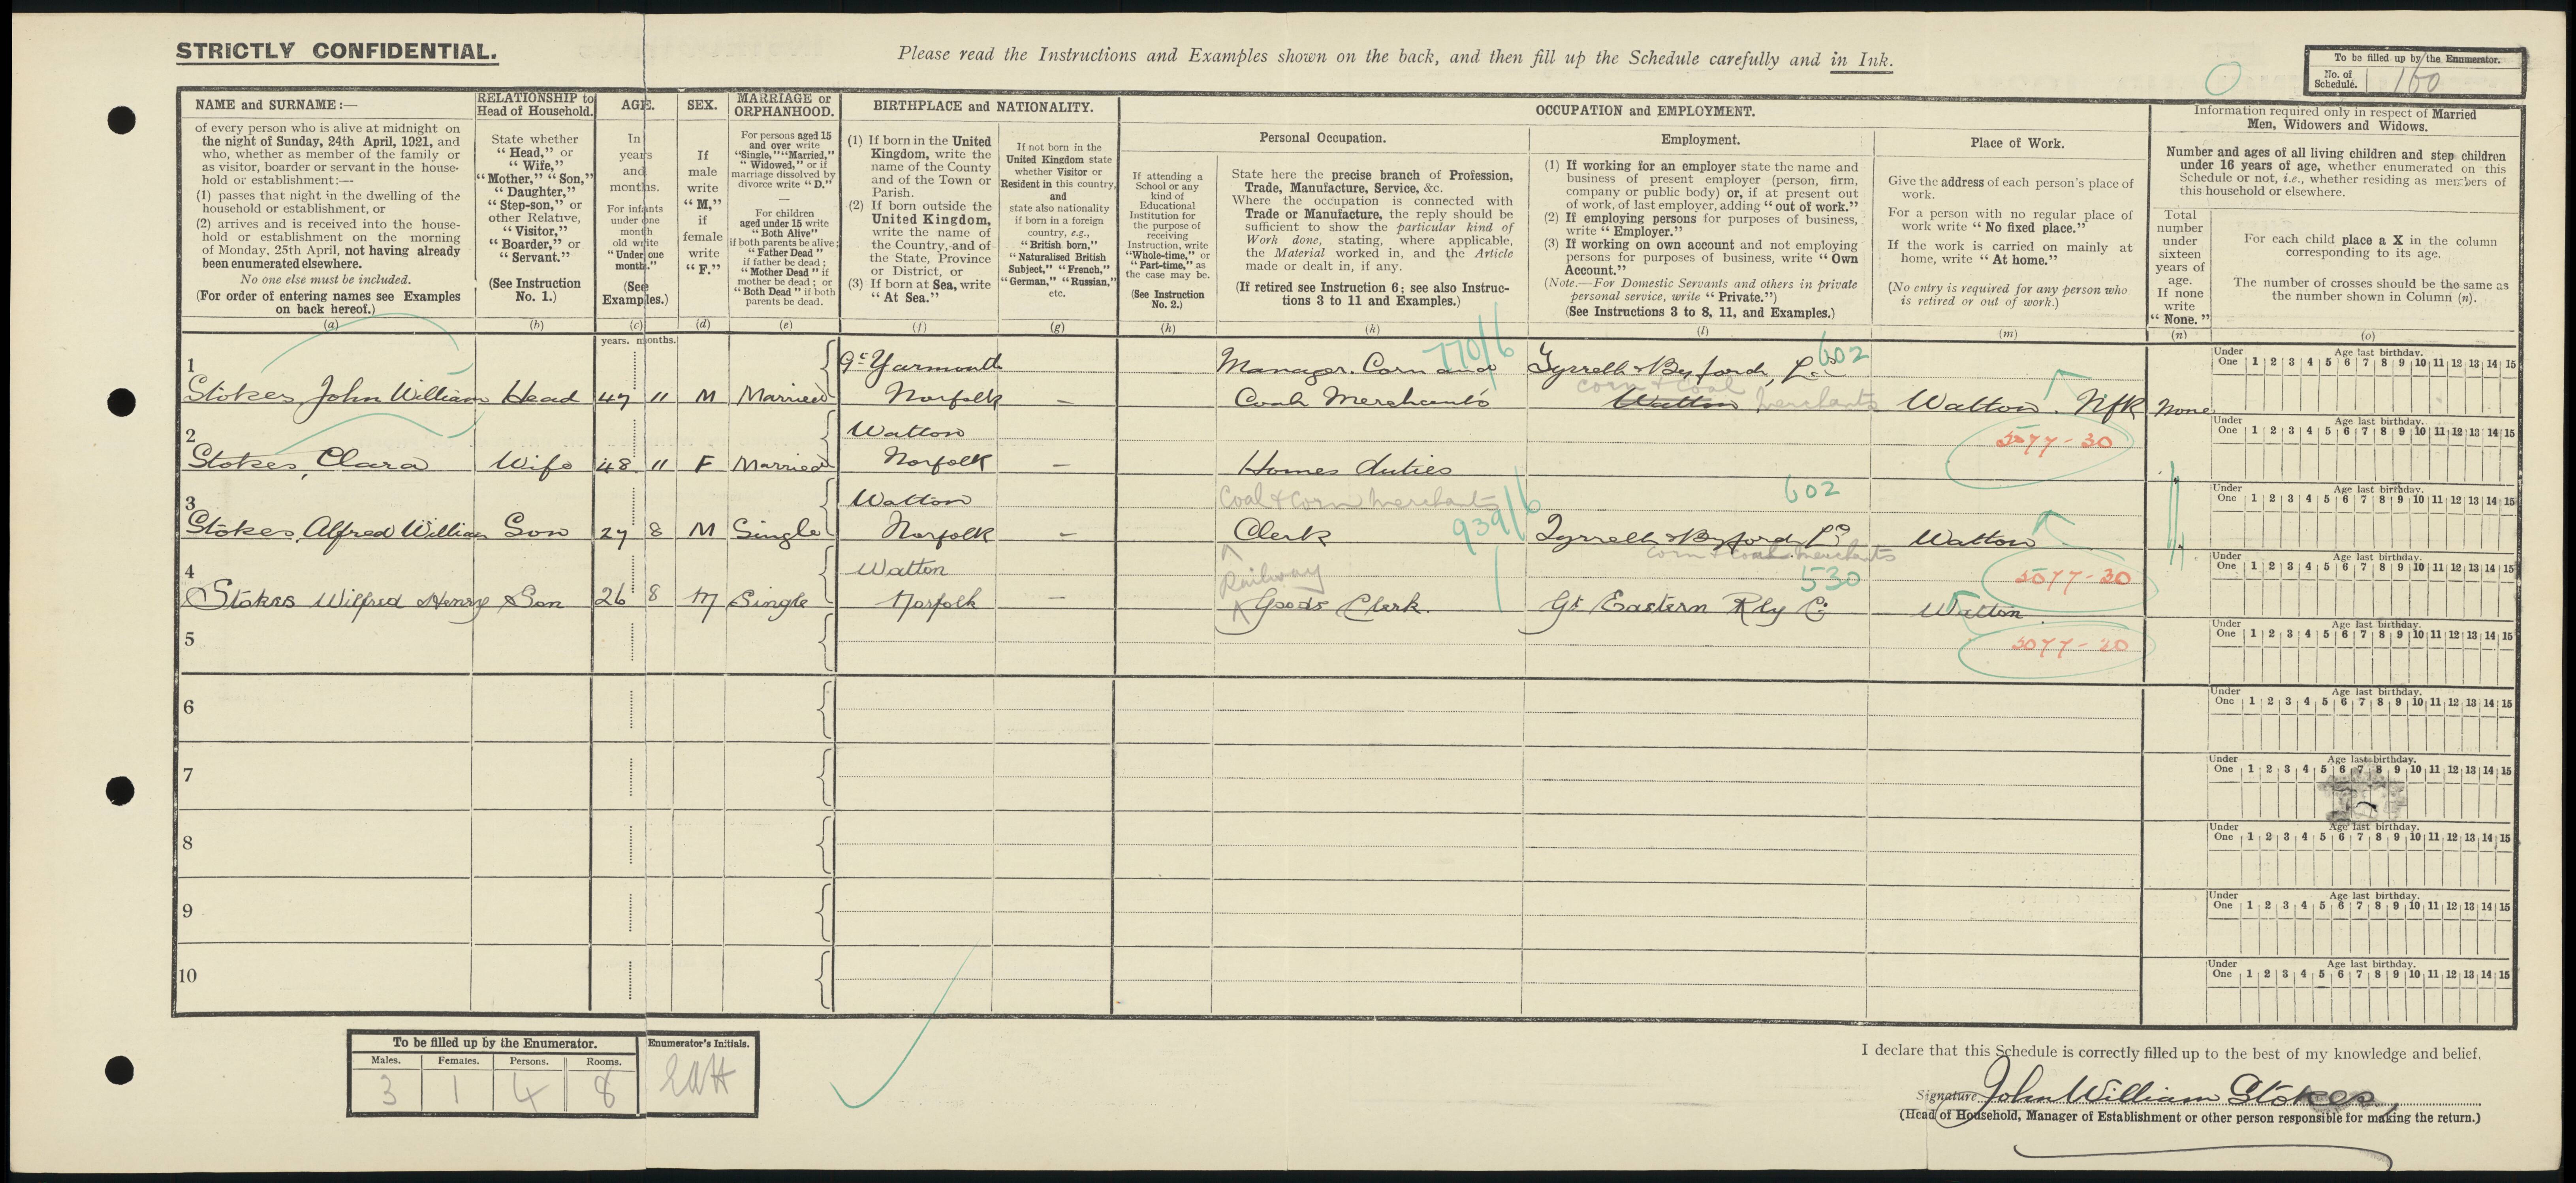 STRICTLY CONFIDENTIAL.
Please read the Instructions and Examples shown on the back, and then fill up the Schedule carefully and in Ink.
To be filled up by the Enumerator.
No. of Schedule. 160
NAME and SURNAME:—
of every person who is alive at midnight on
the night of Sunday, 24th April, 1921, and
who, whether as member of the family or
as visitor, boarder or servant in the house-
hold or establishment:—
(1) passes that night in the dwelling of the
household or establishment, or
(2) arrives and is received into the house-
hold or establishment on the morning
of Monday, 25th April, not having already
been enumerated elsewhere.
No one else must be included.
(For order of entering names see Examples
on back hereof.)
(a)
RELATIONSHIP to
Head of Household.
State whether
"Head," or
"Wife,"
"Mother," "Son,"
"Daughter,"
"Step-son," or
other Relative,
"Visitor,"
"Boarder," or
"Servant."
(See Instruction
No. 1.)
(b)
AGE.
In
years
and
months.
For infants
under one
month
old write
"Under one
month."
(See
Examples.)
(c)
SEX.
If
male
write
"M,"
if
female
write
"F."
(d)
MARRIAGE or
ORPHANHOOD.
For persons aged 15
and over write
"Single," "Married,"
"Widowed," or if
marriage dissolved by
divorce write "D."
—
For children
aged under 15 write
"Both Alive"
if both parents be alive;
"Father Dead"
if father be dead;
"Mother Dead" if
mother be dead; or
"Both Dead" if both
parents be dead.
(e)
BIRTHPLACE and NATIONALITY.
(1) If born in the United
Kingdom, write the
name of the County
and of the Town or
Parish.
(2) If born outside the
United Kingdom,
write the name of
the Country, and of
the State, Province
or District, or
(3) If born at Sea, write
"At Sea."
(f)
If not born in the
United Kingdom state
whether Visitor or
Resident in this country,
and
state also nationality
if born in a foreign
country, e.g.,
"British born,"
"Naturalised British
Subject," "French,"
"German," "Russian,"
etc.
(g)
OCCUPATION and EMPLOYMENT.
If attending a
School or any
kind of
Educational
Institution for
the purpose of
receiving
Instruction, write
"Whole-time," or
"Part-time," as
the case may be.
(See Instruction
No. 2.)
(h)
Personal Occupation.
State here the precise branch of Profession,
Trade, Manufacture, Service, &c.
Where the occupation is connected with
Trade or Manufacture, the reply should be
sufficient to show the particular kind of
Work done, stating, where applicable,
the Material worked in, and the Article
made or dealt in, if any.
(If retired see Instruction 6; see also Instruc-
tions 3 to 11 and Examples.)
(k)
Employment.
(1) If working for an employer state the name and
business of present employer (person, firm,
company or public body) or, if at present out
of work, of last employer, adding "out of work."
(2) If employing persons for purposes of business,
write "Employer."
(3) If working on own account and not employing
persons for purposes of business, write "Own
Account."
(Note.—For Domestic Servants and others in private
personal service, write "Private.")
(See Instructions 3 to 8, 11, and Examples.)
(l)
Place of Work.
Give the address of each person's place of
work.
For a person with no regular place of
work write "No fixed place."
If the work is carried on mainly at
home, write "At home."
(No entry is required for any person who
is retired or out of work.)
(m)
Information required only in respect of Married
Men, Widowers and Widows.
Number and ages of all living children and step children
under 16 years of age, whether enumerated on this
Schedule or not, i.e., whether residing as members of
this household or elsewhere.
Total
number
under
sixteen
years of
age.
If none
write
"None."
(n)
For each child place a X in the column
corresponding to its age.
The number of crosses should be the same as
the number shown in Column (n).
(o)
years. months.
1
Gt Yarmouth Manager. Corn and 770/6 Tyrrell & Byford, Ld. 602
Stokes, John William Head 47 11 M Married Norfolk — Coal Merchants Corn & Coal Merchants Watton Watton. Nfk None
2
Watton 5077-30
Stokes, Clara Wife 48 11 F Married Norfolk — Homes duties
3
Watton Coal & Corn Merchants 939/6 602
Stokes, Alfred William Son 27 8 M Single Norfolk — Clerk Tyrrell & Byford Ld Watton
Corn & Coal Merchants
4
Watton Railway 530 5077-30
Stokes Wilfred Henry Son 26 8 M Single Norfolk — Goods Clerk. Gt Eastern Rly Co Watton
5
5077-20
6
7
8
9
10
Under One 1 2 3 4 5 6 7 8 9 10 11 12 13 14 15
Age last birthday.
Under One 1 2 3 4 5 6 7 8 9 10 11 12 13 14 15
Age last birthday.
Under One 1 2 3 4 5 6 7 8 9 10 11 12 13 14 15
Age last birthday.
Under One 1 2 3 4 5 6 7 8 9 10 11 12 13 14 15
Age last birthday.
Under One 1 2 3 4 5 6 7 8 9 10 11 12 13 14 15
Age last birthday.
Under One 1 2 3 4 5 6 7 8 9 10 11 12 13 14 15
Age last birthday.
Under One 1 2 3 4 5 6 7 8 9 10 11 12 13 14 15
Age last birthday.
Under One 1 2 3 4 5 6 7 8 9 10 11 12 13 14 15
Age last birthday.
Under One 1 2 3 4 5 6 7 8 9 10 11 12 13 14 15
Age last birthday.
Under One 1 2 3 4 5 6 7 8 9 10 11 12 13 14 15
Age last birthday.
To be filled up by the Enumerator.
Males. Females. Persons. Rooms.
3 1 4 8
Enumerator's Initials.
I declare that this Schedule is correctly filled up to the best of my knowledge and belief.
Signature John William Stokes
(Head of Household, Manager of Establishment or other person responsible for making the return.)